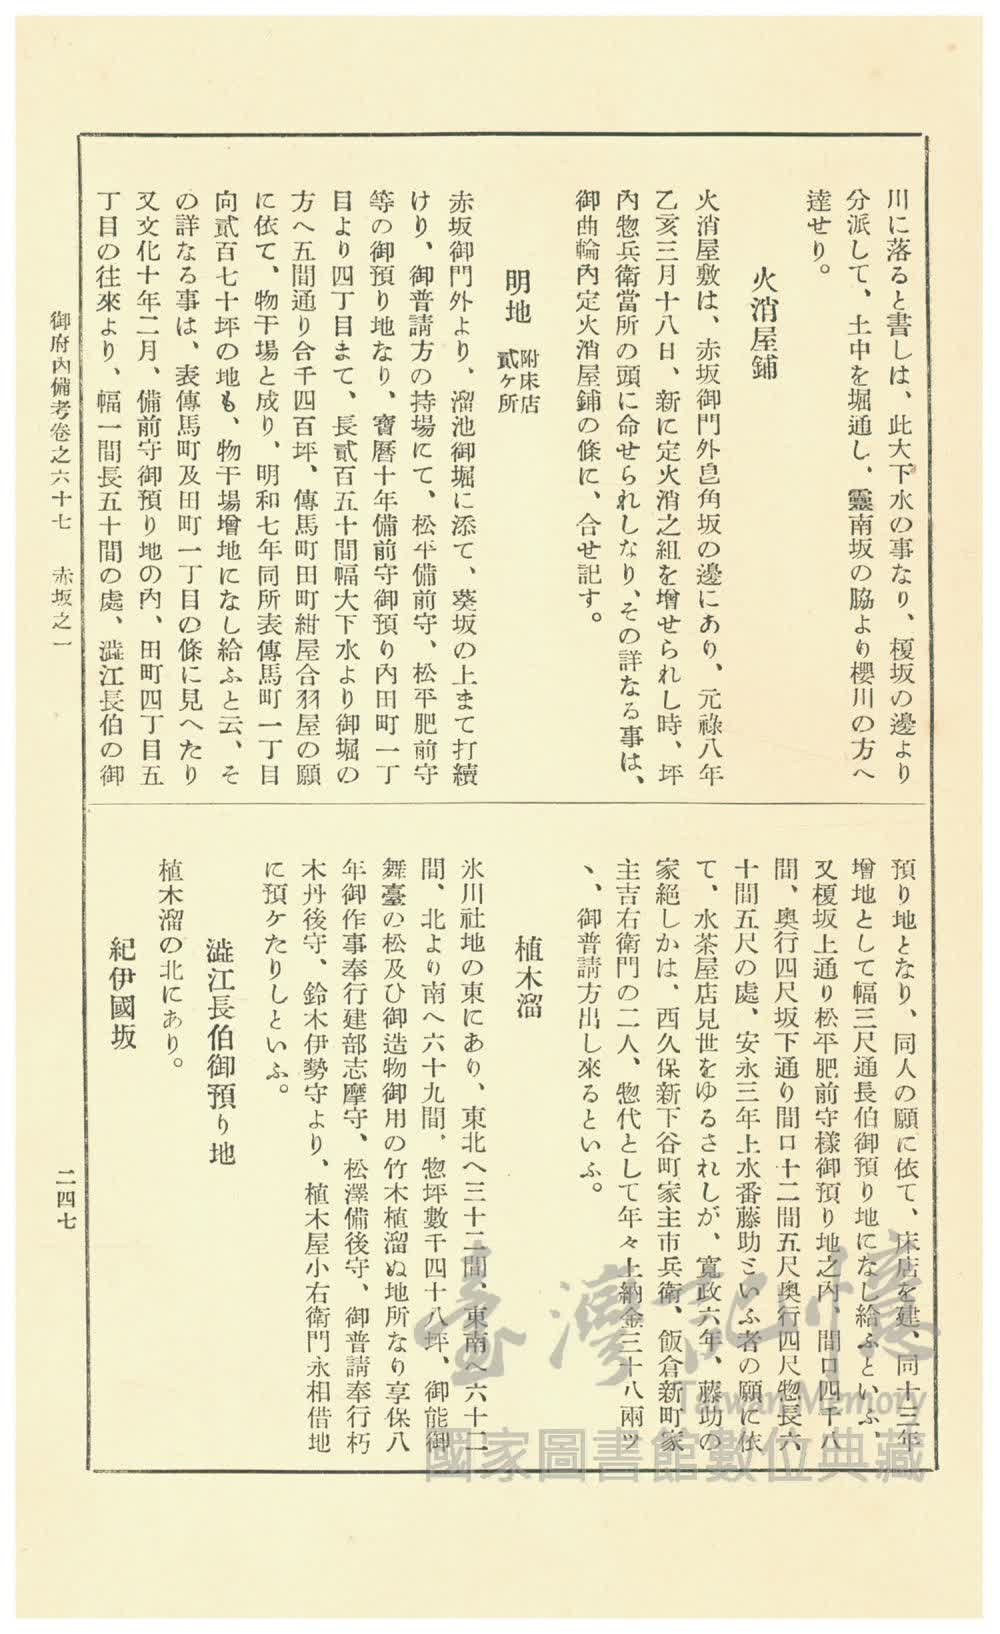 川に落ると書しは、此大下水の事なり、榎坂の邊より
分派して、土中を堀通し、靈南坂の脇より櫻川の方へ
達せり。
火消屋鋪
火消屋敷は、赤坂御門外皀角坂の邊にあり、元祿八年
乙亥三月十八日、新に定火消之組を增せられし時、坪
內惣兵衞當所の頭に命せられしなり、その詳なる事は、
御曲輪內定火消屋鋪の條に、合せ記す。
明地 附床店
貳ヶ所
赤坂御門外より、溜池御堀に添て、葵坂の上まて打續
けり、御普請方の持場にて、松平備前守、松平肥前守
等の御預り地なり、寶曆十年備前守御預り內田町一丁
目より四丁目まて、長貳百五十間幅大下水より御堀の
方へ五間通り合千四百坪、傳馬町田町紺屋合羽屋の願
に依て、物干場と成り、明和七年同所表傳馬町一丁目
向貳百七十坪の地も、物干場增地になし給ふと云、そ
の詳なる事は、表傳馬町及田町一丁目の條に見へたり
又文化十年二月、備前守御預り地の內、田町四丁目五
丁目の往來より、幅一間長五十間の處、澁江長伯の御
預り地となり、同人の願に依て、床店を建、同十三年
增地として幅三尺通長伯御預り地になし給ふといふ、
又榎坂上通り松平肥前守樣御預り地之內、間口四千八
間、奥行四尺坂下通り間口十二間五尺奥行四尺惣長六
十間五尺の處、安永三年上水番藤助といふ者の願に依
て、水茶屋店見世をゆるされしが、寬政六年、藤助の
家絕しかは、西久保新下谷町家主市兵衞、飯倉新町家
主吉右衞門の二人、惣代として年々上納金三十八兩ツ
丶、御普請方出し來るといふ。
植木溜
氷川社地の東にあり、東北へ三十二間、東南へ六十二
間、北より南へ六十九間、惣坪數千四十八坪、御能御
舞臺の松及ひ御造物御用の竹木植溜ぬ地所なり享保八
年御作事奉行建部志摩守、松澤備後守、御普請奉行朽
木丹後守、鈴木伊勢守より、植木屋小右衞門永相借地
に預ケたりしといふ。
澁江長伯御預り地
植木溜の北にあり。
紀伊國坂
御府內備考卷之六十七 赤坂之一
二四七
臺灣記憶
Taiwan Memory
國家圖書館數位典藏